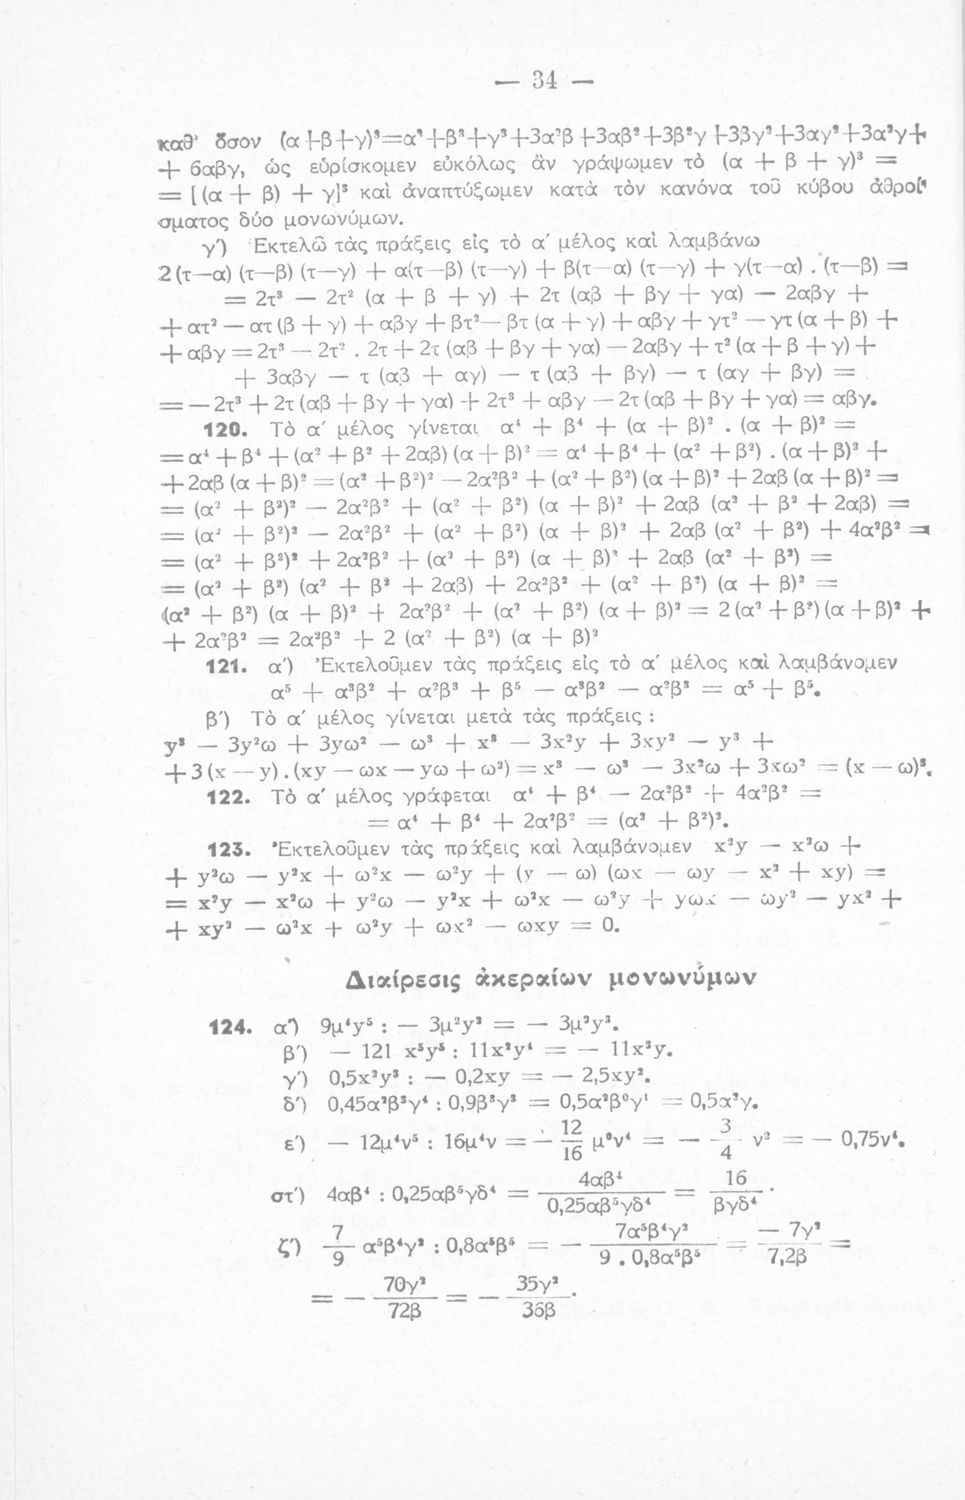 — 34 —
καθ' ὅσον (α+β+γ)³=α³+β³+γ³+3α²β+3αβ²+3β²γ+3βγ²+3αγ²+3α²γ+
+ 6αβγ, ὡς εὑρίσκομεν εὐκόλως ἂν γράψωμεν τὸ (α + β + γ)³ =
= [(α + β) + γ]³ καὶ ἀναπτύξωμεν κατὰ τὸν κανόνα τοῦ κύβου ἀθροί-
σματος δύο μονωνύμων.
γ') Ἐκτελῶ τὰς πράξεις εἰς τὸ α' μέλος καὶ λαμβάνω
2 (τ—α) (τ—β) (τ—γ) + α(τ—β) (τ—γ) + β(τ—α) (τ—γ) + γ(τ—α) . (τ—β) =
= 2τ³ — 2τ² (α + β + γ) + 2τ (αβ + βγ + γα) — 2αβγ +
+ ατ² — ατ (β + γ) + αβγ + βτ² — βτ (α + γ) + αβγ + γτ² — γτ (α + β) +
+ αβγ = 2τ³ — 2τ² . 2τ + 2τ (αβ + βγ + γα) — 2αβγ + τ² (α + β + γ) +
+ 3αβγ — τ (αβ + αγ) — τ (αβ + βγ) — τ (αγ + βγ) =
= — 2τ³ + 2τ (αβ + βγ + γα) + 2τ³ + αβγ — 2τ (αβ + βγ + γα) = αβγ.
120. Τὸ α' μέλος γίνεται α⁴ + β⁴ + (α + β)² . (α + β)² =
= α⁴ + β⁴ + (α² + β² + 2αβ) (α + β)² = α⁴ + β⁴ + (α² + β²) . (α + β)² +
+ 2αβ (α + β)² = (α² + β²)² — 2α²β² + (α² + β²) (α + β)² + 2αβ (α + β)² =
= (α² + β²)² — 2α²β² + (α² + β²) (α + β)² + 2αβ (α² + β² + 2αβ) =
= (α² + β²)² — 2α²β² + (α² + β²) (α + β)² + 2αβ (α² + β²) + 4α²β² =
= (α² + β²)² + 2α²β² + (α² + β²) (α + β)² + 2αβ (α² + β²) =
= (α² + β²) (α² + β² + 2αβ) + 2α²β² + (α² + β²) (α + β)² =
(α² + β²) (α + β)² + 2α²β² + (α² + β²) (α + β)² = 2 (α² + β²) (α + β)² +
+ 2α²β² = 2α²β² + 2 (α² + β²) (α + β)²
121. α') Ἐκτελοῦμεν τὰς πράξεις εἰς τὸ α' μέλος καὶ λαμβάνομεν
α⁵ + α³β² + α²β³ + β⁵ — α³β² — α²β³ = α⁵ + β⁵.
β') Τὸ α' μέλος γίνεται μετὰ τὰς πράξεις :
y³ — 3y²ω + 3yω² — ω³ + x³ — 3x²y + 3xy² — y³ +
+ 3 (x — y) . (xy — ωx — yω + ω²) = x³ — ω³ — 3x²ω + 3xω² = (x — ω)³.
122. Τὸ α' μέλος γράφεται α⁴ + β⁴ — 2α²β² + 4α²β² =
= α⁴ + β⁴ + 2α²β² = (α² + β²)².
123. Ἐκτελοῦμεν τὰς πράξεις καὶ λαμβάνομεν x²y — x²ω +
+ y²ω — y²x + ω²x — ω²y + (y — ω) (ωx — ωy — x² + xy) =
= x²y — x²ω + y²ω — y²x + ω²x — ω²y + yωx — ωy² — yx² +
+ xy² — ω²x + ω²y + ωx² — ωxy = 0.
Διαίρεσις ἀκεραίων μονωνύμων
124. α') 9μ⁴y⁵ : — 3μ²y² = — 3μ²y³.
β') — 121 x⁵y⁵ : 11x²y⁴ = — 11x³y.
γ') 0,5x²y³ : — 0,2xy = — 2,5xy².
δ') 0,45α²β³γ⁴ : 0,9β³γ³ = 0,5α²β⁰γ¹ = 0,5α²γ.
ε') — 12μ⁴ν⁵ : 16μ⁴ν = — 12/16 μ⁰ν⁴ = — 3/4 ν² = — 0,75ν⁴.
στ') 4αβ⁴ : 0,25αβ⁵γδ⁴ = 4αβ⁴/0,25αβ⁵γδ⁴ = 16/βγδ⁴.
ζ') — 7/9 α⁵β⁴γ² : 0,8α⁵β⁵ = — 7α⁵β⁴γ²/9 . 0,8α⁵β⁵ = — 7γ²/7,2β =
= — 70γ²/72β = — 35γ²/36β.